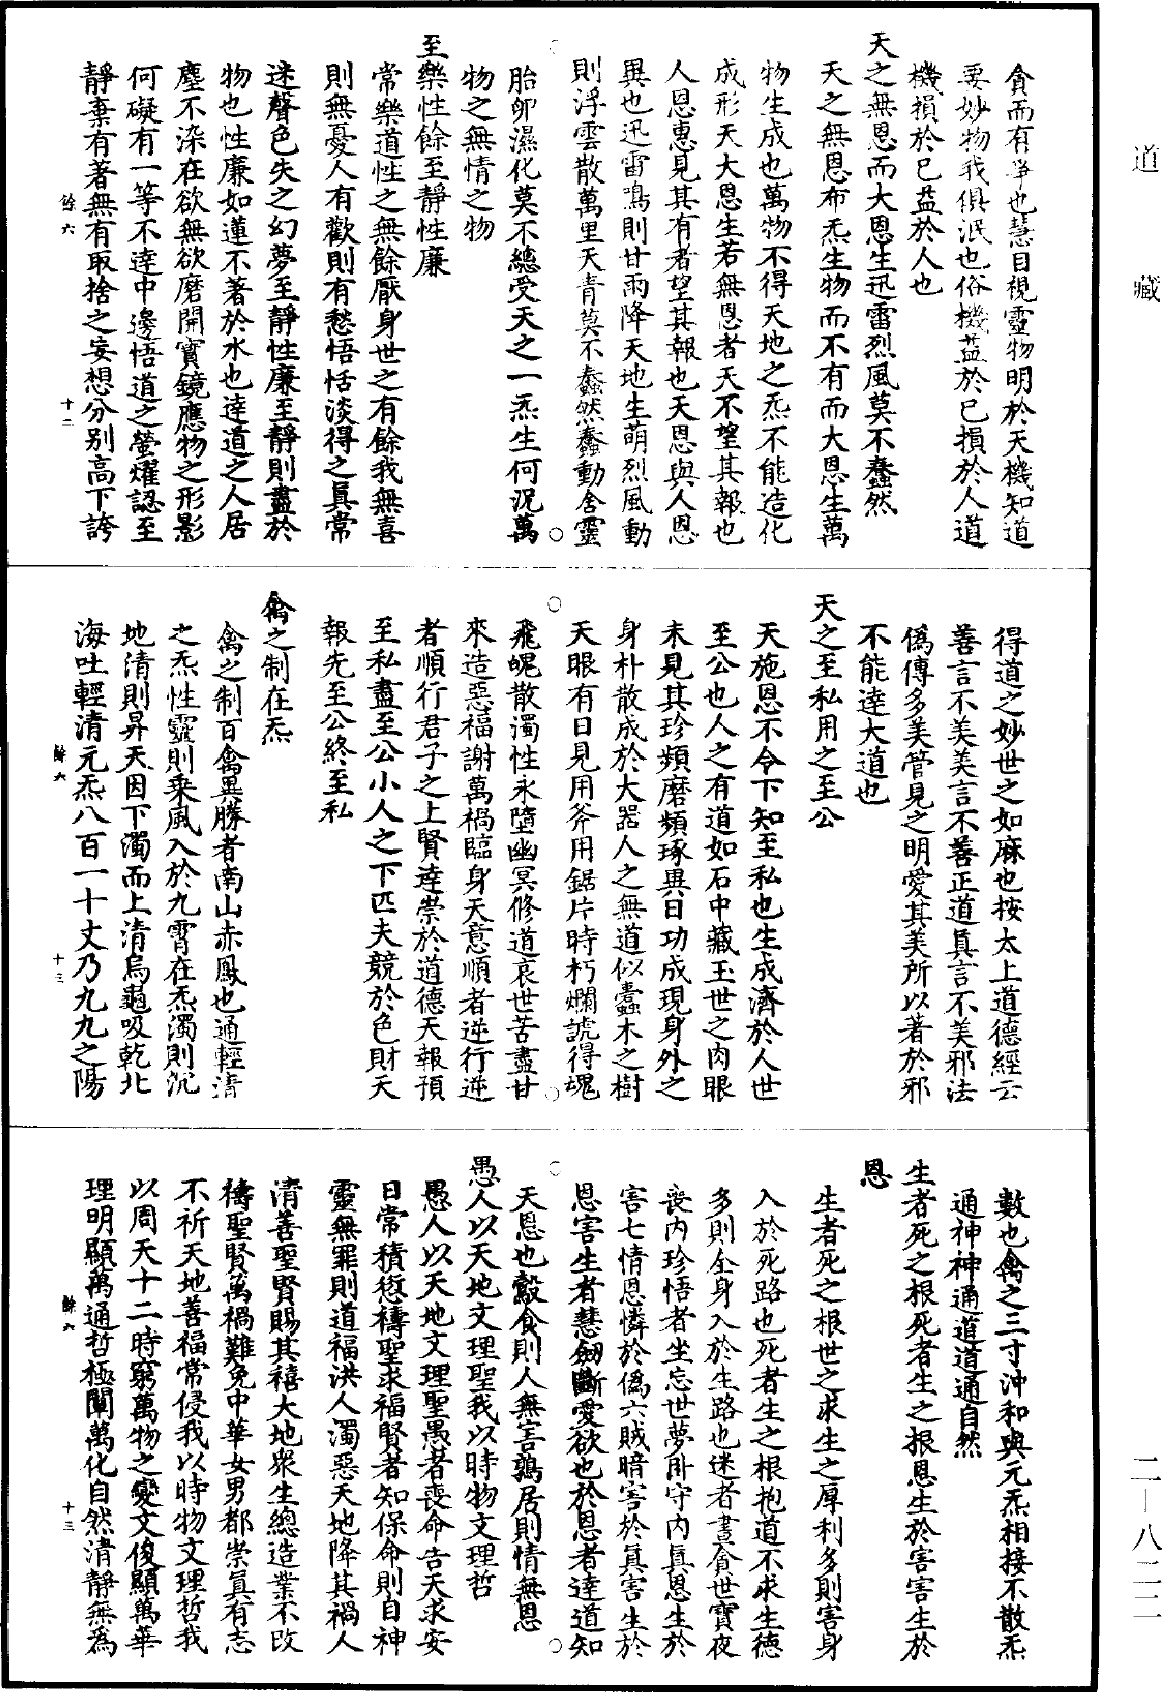 道藏
貪而有爭也慧目視靈物明於天機知道
要妙物我俱泯也俗機益於已損於人道
機損於已益於人也
天之無恩而大恩生迅雷烈風莫不蠢然
天之無恩布炁生物而不有而大恩生萬
物生成也萬物不得天地之炁不能造化
成形天大恩生若無恩者天不望其報也
人恩惠見其有者望其報也天恩與人恩
異也迅雷鳴則甘雨降天地生萌烈風動
則浮雲散萬里天青莫不蠢然蠢動含靈
胎卵濕化莫不總受天之一炁生何況萬
物之無情之物
至樂性餘至靜性廉
常樂道性之無餘厭身世之有餘我無喜
則無憂人有歡則有愁悟恬淡得之真常
迷聲色失之幻夢至靜性廉至靜則盡於
物也性廉如蓮不著於水也達道之人居
塵不染在欲無欲磨開寶鏡應物之形影
何礙有一等不達中邊悟道之瑩燿認至
靜棄有著無有取捨之妄想分別高下誇
餘六
十二
得道之妙世之如麻也按太上道德經云
善言不美美言不善正道真言不美邪法
偽傳多美管見之明愛其美所以著於邪
不能達大道也
天之至私用之至公
天施恩不令下知至私也生成濟於人世
至公也人之有道如石中藏玉世之肉眼
未見其珍頻磨頻琢異日功成現身外之
身朴散成於大器人之無道似蠹木之樹
天眼有日見用斧用鋸片時朽爛諕得魂
飛魄散濁性永墮幽冥修道哀世苦盡甘
來造惡福謝萬禍臨身天意順者逆行逆
者順行君子之上賢達崇於道德天報預
至私盡至公小人之下匹夫競於色財天
報先至公終至私
禽之制在炁
禽之制百禽異勝者南山赤鳳也通輕清
之炁性靈則乘風入於九霄在炁濁則沉
地清則昇天因下濁而上清烏龜吸乾北
海吐輕清元炁八百一十丈乃九九之陽
餘六
十三
數也禽之三寸沖和與元炁相接不散炁
通神神通道道通自然
生者死之根死者生之根恩生於害害生於
恩
生者死之根世之求生之厚利多則害身
入於死路也死者生之根抱道不求生德
多則全身入於生路也迷者晝貪世寶夜
喪內珍悟者坐忘世夢卧守內真恩生於
害七情恩憐於偽六賊暗害於真害生於
恩害生者慧劒斷愛欲也於恩者達道知
天恩也鷇食則人無害鶉居則情無恩
愚人以天地文理聖我以時物文理哲
愚人以天地文理聖愚者喪命告天求安
日常積愆禱聖求福賢者知保命則自神
靈無罪則道福洪人濁惡天地降其禍人
清善聖賢賜其禧大地眾生總造業不改
禱聖賢萬禍難免中華女男都崇真有志
不祈天地善福常侵我以時物文理哲我
以周天十二時窮萬物之變文俊顯萬華
理明顯萬通哲極闡萬化自然清靜無為
餘六
十三
二—八二二